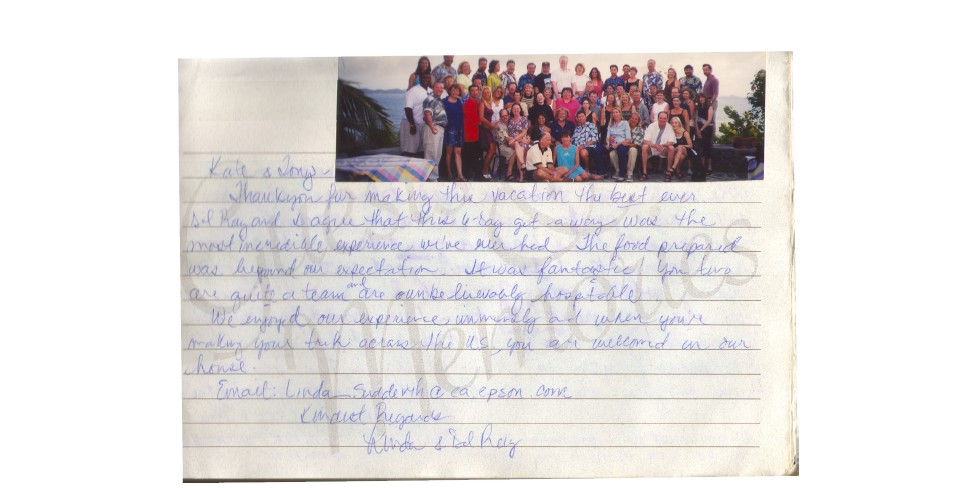 Kate & Tony -
Thankyou for making this vacation the best ever
Ed Ray and I agree that this 6-day get away was the
most incredible experience we've ever had The food prepared
was beyond our expectation. It was fantastic You two
are quite a team and are unbelievably hospitable.
We enjoyed our experience and when you're
making your trek across the US, you are welcomed in our
house.
Email: Linda_Sudderth@ea.epson.com
Kindest Regards
Linda & Ed Ray
Memories